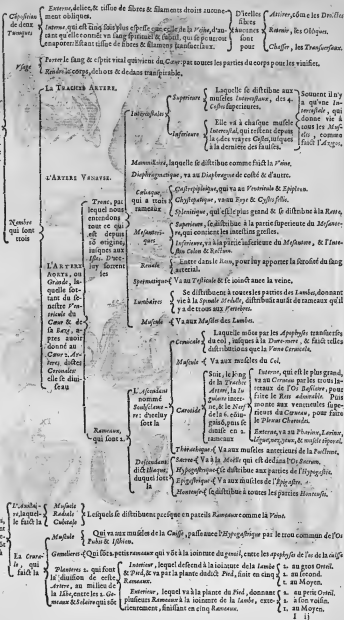 Cōpositiō de deux Tuniques
Externe, delice, & tissue de fibres & filaments droits aucunement obliques.
Interne, qui est cinq fois plus espesse que celle de la Veine, d'autant qu'elle contiēt vn sang spirituel & subtil, qui se pourroit euaporer. Estant tissue de fibres & filaments transuersaux.
D'icelles fibres aucunes sont pour
Attirer, cōme les Droites
Retenir, les Obliques.
Chasser, les Transuersaux.
Vsage
Porter le sang & esprit vital qui vient du Cœur par toutes les parties du corps pour les viuifier.
Rendre le corps, dehors & dedans transpirable.
Nombre qui sont trois
LA TRACHEE ARTERE.
L'ARTERE VENEVSE.
L'ARTERE AORTE, ou Grande, laquelle sortant du senestre Ventricule du Cœur & de la Baze, apres auoir donné au Cœur 2. Arteres dittes Coronales elle se diuiseau
Tronc, par lequel nous entendons tout ce qui est depuis son origine, iusques aux Iles. D'iceluy sortent les
Intercostales
Superieure
Laquelle se distribue aux muscles Intercostaux, des 4. Costes superieures.
Inferieure
Elle va à chasque muscle Intercostal, qui restent depuis la des vrayes Costes, iusques à la derniere des fausses.
Souuent il n'y a qu'vne Intercostale, qui donne vie à tous les Muscles, comme faict l'Azygos.
Mammillaire, laquelle se distribue comme faict la Veine.
Diaphragmatique, va au Diaphragme de costé & d'autre.
Cœliaque, qui a trois rameaux
Gastrepiploique, qui va au Ventricule & Epiploon.
Chystepatique, va au Foye & Cystis fellis.
Splenitique, qui est le plus grand & se distribue à la Ratte,
Mesenteriques
Superieure, se distribue à la partie superieure du Mesantere, qui contient les intestins gresles.
Inferieure, va à la partie inferieure du Mesantere, & l'Intestin Colon & Rectum.
Renale
Entre dans le Rein, pour luy apporter la serosité du sang arterial.
Spermatique
Va au Testicule & se ioinct auec la veine.
Lumbaires
Se distribuent à toutes les parties des Lumbes, donnant vie à la Spinale Medulle, distribuāt autāt de rameaux qu'il y a de trous aux Vertebres.
Muscule
Va aux Muscles des Lumbes.
Rameaux, qui sont 2.
L'Ascendant nommé Souslauiere d'iceluy sort la
Ceruicale
Laquelle entre par les Apophyses transuerses du col, iusques à la Dure-mere, & faict telles distributions que la Veine Ceruicale.
Muscule
Va aux muscles du Col.
Carotide
Suit, le long de la Trachee Artere, la Iugulaire interne, & le Nerf de la 6. coniugaisō, puis se diuise en 2. rameaux
Interne, qui est le plus grand, va au Cerueau par les trous lateraux de l'Os Basilaire, pour faire le Rets admirable. Puis monte aux ventricules superieurs du Cerueau, pour faire le Plexus Choroides.
Externe, va au Pharinx, Larinx, langue, nez, yeux, & muscle tēporel.
Thorachique
Va aux muscles anterieurs de la Poictrine.
Descendant dict Iliaque, duquel sort la
Sacree
Va à la Moëlle qui est dedans l'Os Sacrum.
Hypogastrique
se distribue aux parties de l'Hypogastre.
Epigastrique
Va aux muscles de l'Epigastre.
Honteuse
se distribue à toutes les parties Honteuses.
L'Axillaire, laquelle faict la
Muscule
Radiale
Cubitale
Lesquels se distribuent presque en pareils Rameaux comme la Veine.
La Crurale, qui faict la
Muscule
Qui va aux muscles de la Cuisse, passe auec l'Hypogastrique par le trou commun de l'Os Pubis & Ischion.
Gemelieres
Qui sōt 2. petits rameaux qui vōt à la iointure du genoil, entre les apophyses de l'os de la cuisse
Plantieres 2. qui font la diuision de ceste Artere, au milieu de la Iābe, entre les 2. Gemeaux & Soleire qui sōt
Interieur, lequel descend à la iointure de la iambe & Pied, & va par la plante du dict Pied, finit en cinq Rameaux.
1. au gros Orteil.
1. au second.
1. au Moyen.
Exterieur, lequel va à la plante du Pied, donnant plusieurs Rameaux à la iointure de la iambe, exterieurement, finissant en cinq Rameaux.
2. au petit Orteil.
2. à son voisin.
1. au Moyen.
I ij